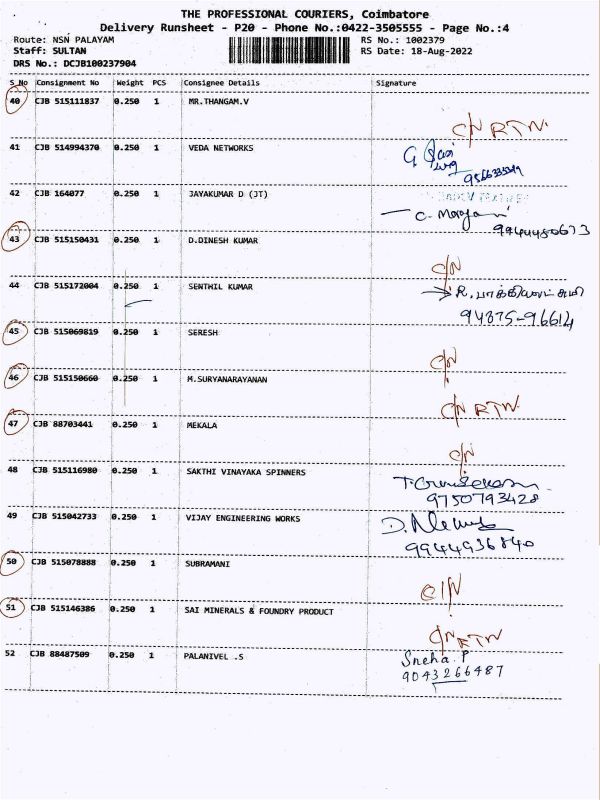 THE PROFESSIONAL COURIERS, Coimbatore
Delivery Runsheet - P20 - Phone No.:0422-3505555 - Page No.:4
Route: NSN PALAYAM RS No.: 1002379
Staff: SULTAN RS Date: 18-Aug-2022
DRS No.: DCJB100237904
S_No Consignment No Weight PCS Consignee Details Signature
40 CJB 515111837 0.250 1 MR.THANGAM.V
C/N RTN.
41 CJB 514994370 0.250 1 VEDA NETWORKS
42 CJB 164077 0.250 1 JAYAKUMAR D (JT)
9944480673
43 CJB 515150431 0.250 1 D.DINESH KUMAR
C/N
44 CJB 515172004 0.250 1 SENTHIL KUMAR
94875-96614
45 CJB 515069819 0.250 1 SERESH
C/N
46 CJB 515150660 0.250 1 M.SURYANARAYANAN
C/N RTN.
47 CJB 88703441 0.250 1 MEKALA
C/N
48 CJB 515116980 0.250 1 SAKTHI VINAYAKA SPINNERS
9750793428
49 CJB 515042733 0.250 1 VIJAY ENGINEERING WORKS
9944936840
50 CJB 515078888 0.250 1 SUBRAMANI
C/N
51 CJB 515146386 0.250 1 SAI MINERALS & FOUNDRY PRODUCT
C/N RTN
52 CJB 88487509 0.250 1 PALANIVEL .S
Sneha.P
9043266487